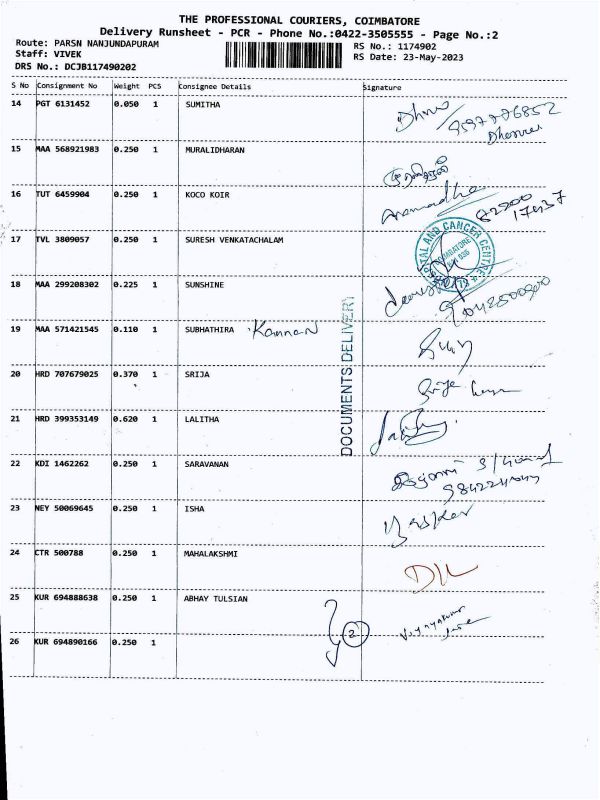 THE PROFESSIONAL COURIERS, COIMBATORE
Delivery Runsheet - PCR - Phone No.:0422-3505555 - Page No.:2
Route: PARSN NANJUNDAPURAM
RS No.: 1174902
Staff: VIVEK
RS Date: 23-May-2023
DRS No.: DCJB117490202
S No Consignment No Weight PCS Consignee Details Signature
14 PGT 6131452 0.050 1 SUMITHA
15 MAA 568921983 0.250 1 MURALIDHARAN
16 TUT 6459904 0.250 1 KOCO KOIR
17 TVL 3809057 0.250 1 SURESH VENKATACHALAM
18 MAA 299208302 0.225 1 SUNSHINE
19 MAA 571421545 0.110 1 SUBHATHIRA Kannan
20 HRD 707679025 0.370 1 SRIJA
21 HRD 399353149 0.620 1 LALITHA
22 KDI 1462262 0.250 1 SARAVANAN
23 NEY 50069645 0.250 1 ISHA
24 CTR 500788 0.250 1 MAHALAKSHMI
25 KUR 694888638 0.250 1 ABHAY TULSIAN
2
26 KUR 694890166 0.250 1
DOCUMENTS DELIVERY
AND CANCER CENTRE
COIMBATORE